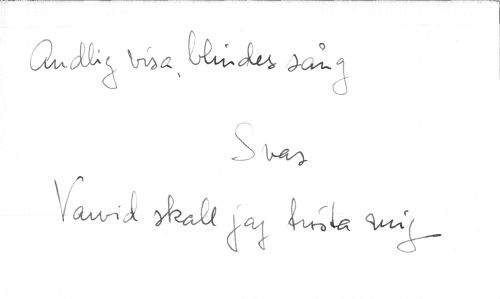 Andlig visa, blindes sång
Svar
Varvid skall jag trösta mig